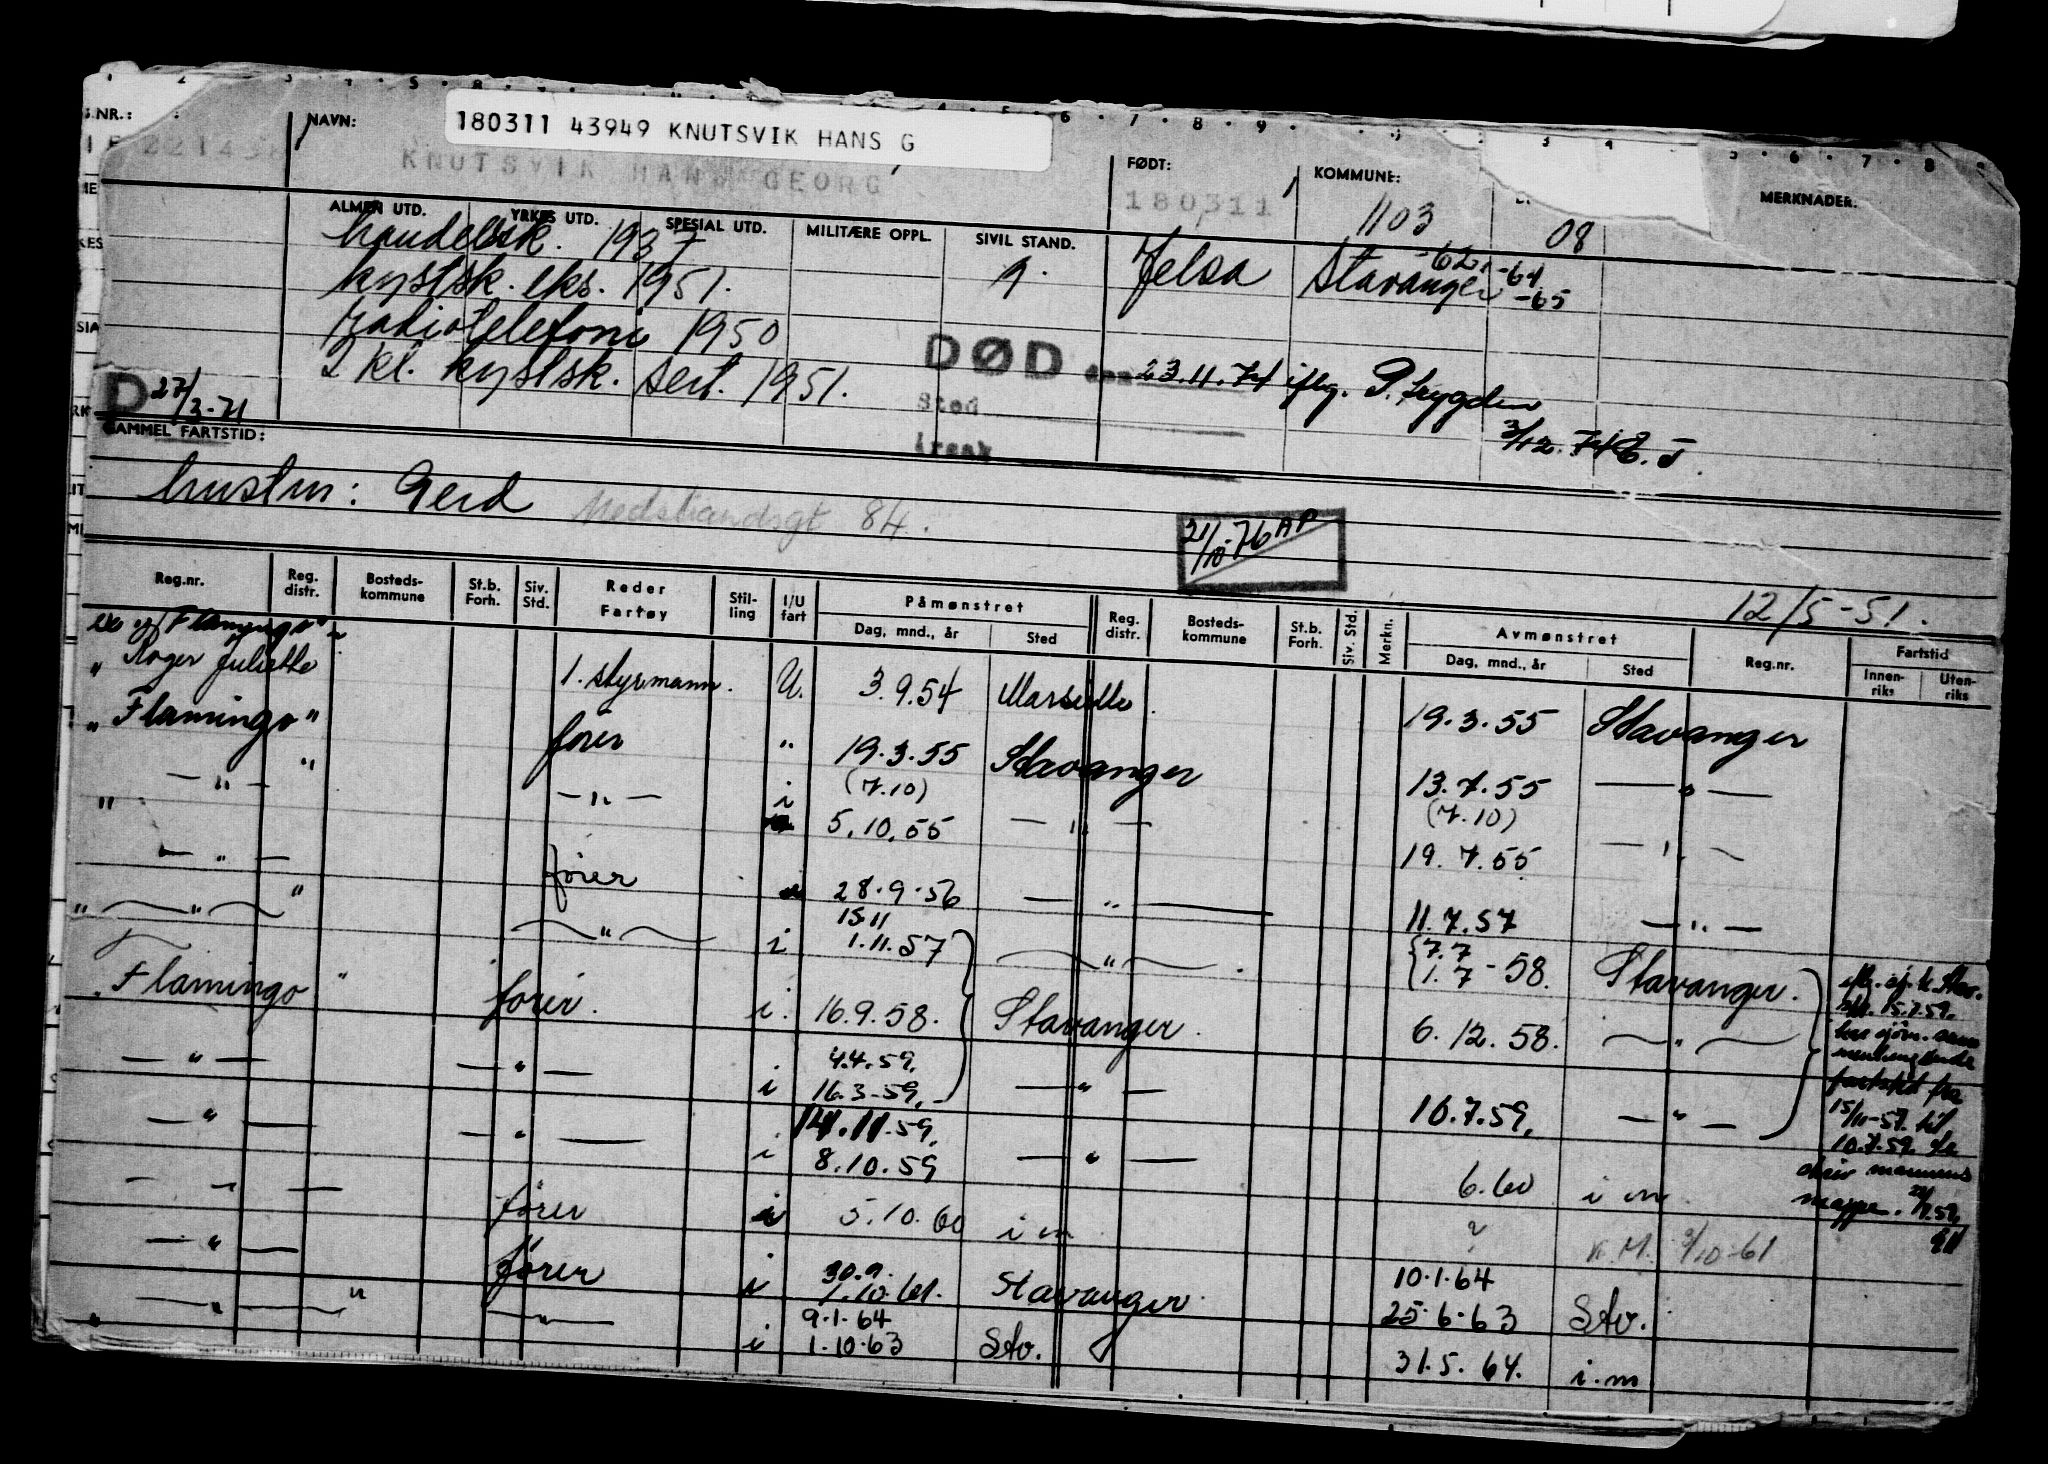 180311 43949 KNUTSVIK HANS G
NAVN:
KNUTSVIK HANS GEORG
FØDT:
180311
KOMMUNE:
1103
08
MERKNADER.
ALMEN UTD. YRKES UTD. SPESIAL UTD. MILITÆRE OPPL. SIVIL STAND.
handelssk. 1937
kystsk. eks. 1951. g. Jelsa Stavanger -62, -64 -65
radiotelefoni 1950
2 kl. kystsk. sert. 1951.
DØD den 23.11.74 iflg. P. trygden
Sted
Årsak
3/12.74
D 27/3-71
GAMMEL FARTSTID:
hustru: Gerd Nedstrandsgt 84.
21/10-76 AP
12/5-51.
Reg.nr. Reg. distr. Bosteds-kommune St.b. Forh. Siv. Std. Reder Fartøy Stil-ling I/U fart Påmønstret Dag, mnd., år Sted Reg. distr. Bosteds-kommune St.b. Forh. Siv. Std. Merkn. Avmønstret Dag, mnd., år Sted Reg.nr. Fartstid Innen-riks Uten-riks
"Flamingo"
" Roger Juliette 1. styrmann. U. 3.9.54 Marseille. 19.3.55 Stavanger
" Flamingo " fører " 19.3.55 Stavanger 13.7.55 — " —
— " — " — " — i (7.10) 5.10.55 — " — (7.10) 19.7.55 — " —
"
— " — fører 28.9.56 — " — 11.7.57 — " —
" — " — " — " — i 15.11 1.11.57 — " — 7.7 1.7-58. Stavanger.
Flamingo " fører. i. 16.9.58. Stavanger. 6.12.58. — " —
— " — — " — i 4.4.59. 16.3-59. — " — 10.7.59. — " —
— " — — " — i 14.11.59. 8.10.59 — " — 6.60 i m
— " — fører i 5.10.60 i m ? K.M. 9/10-61
— " — fører i 30.9. 1.10.61. Stavanger 10.1.64 25.6.63 Stv.
" — " — " — " — i 9.1.64 1.10.63 Stv. 31.5.64. i.m
15.7.59.
fartstid fra
15/11-57. til
10.7.59.
mappe.